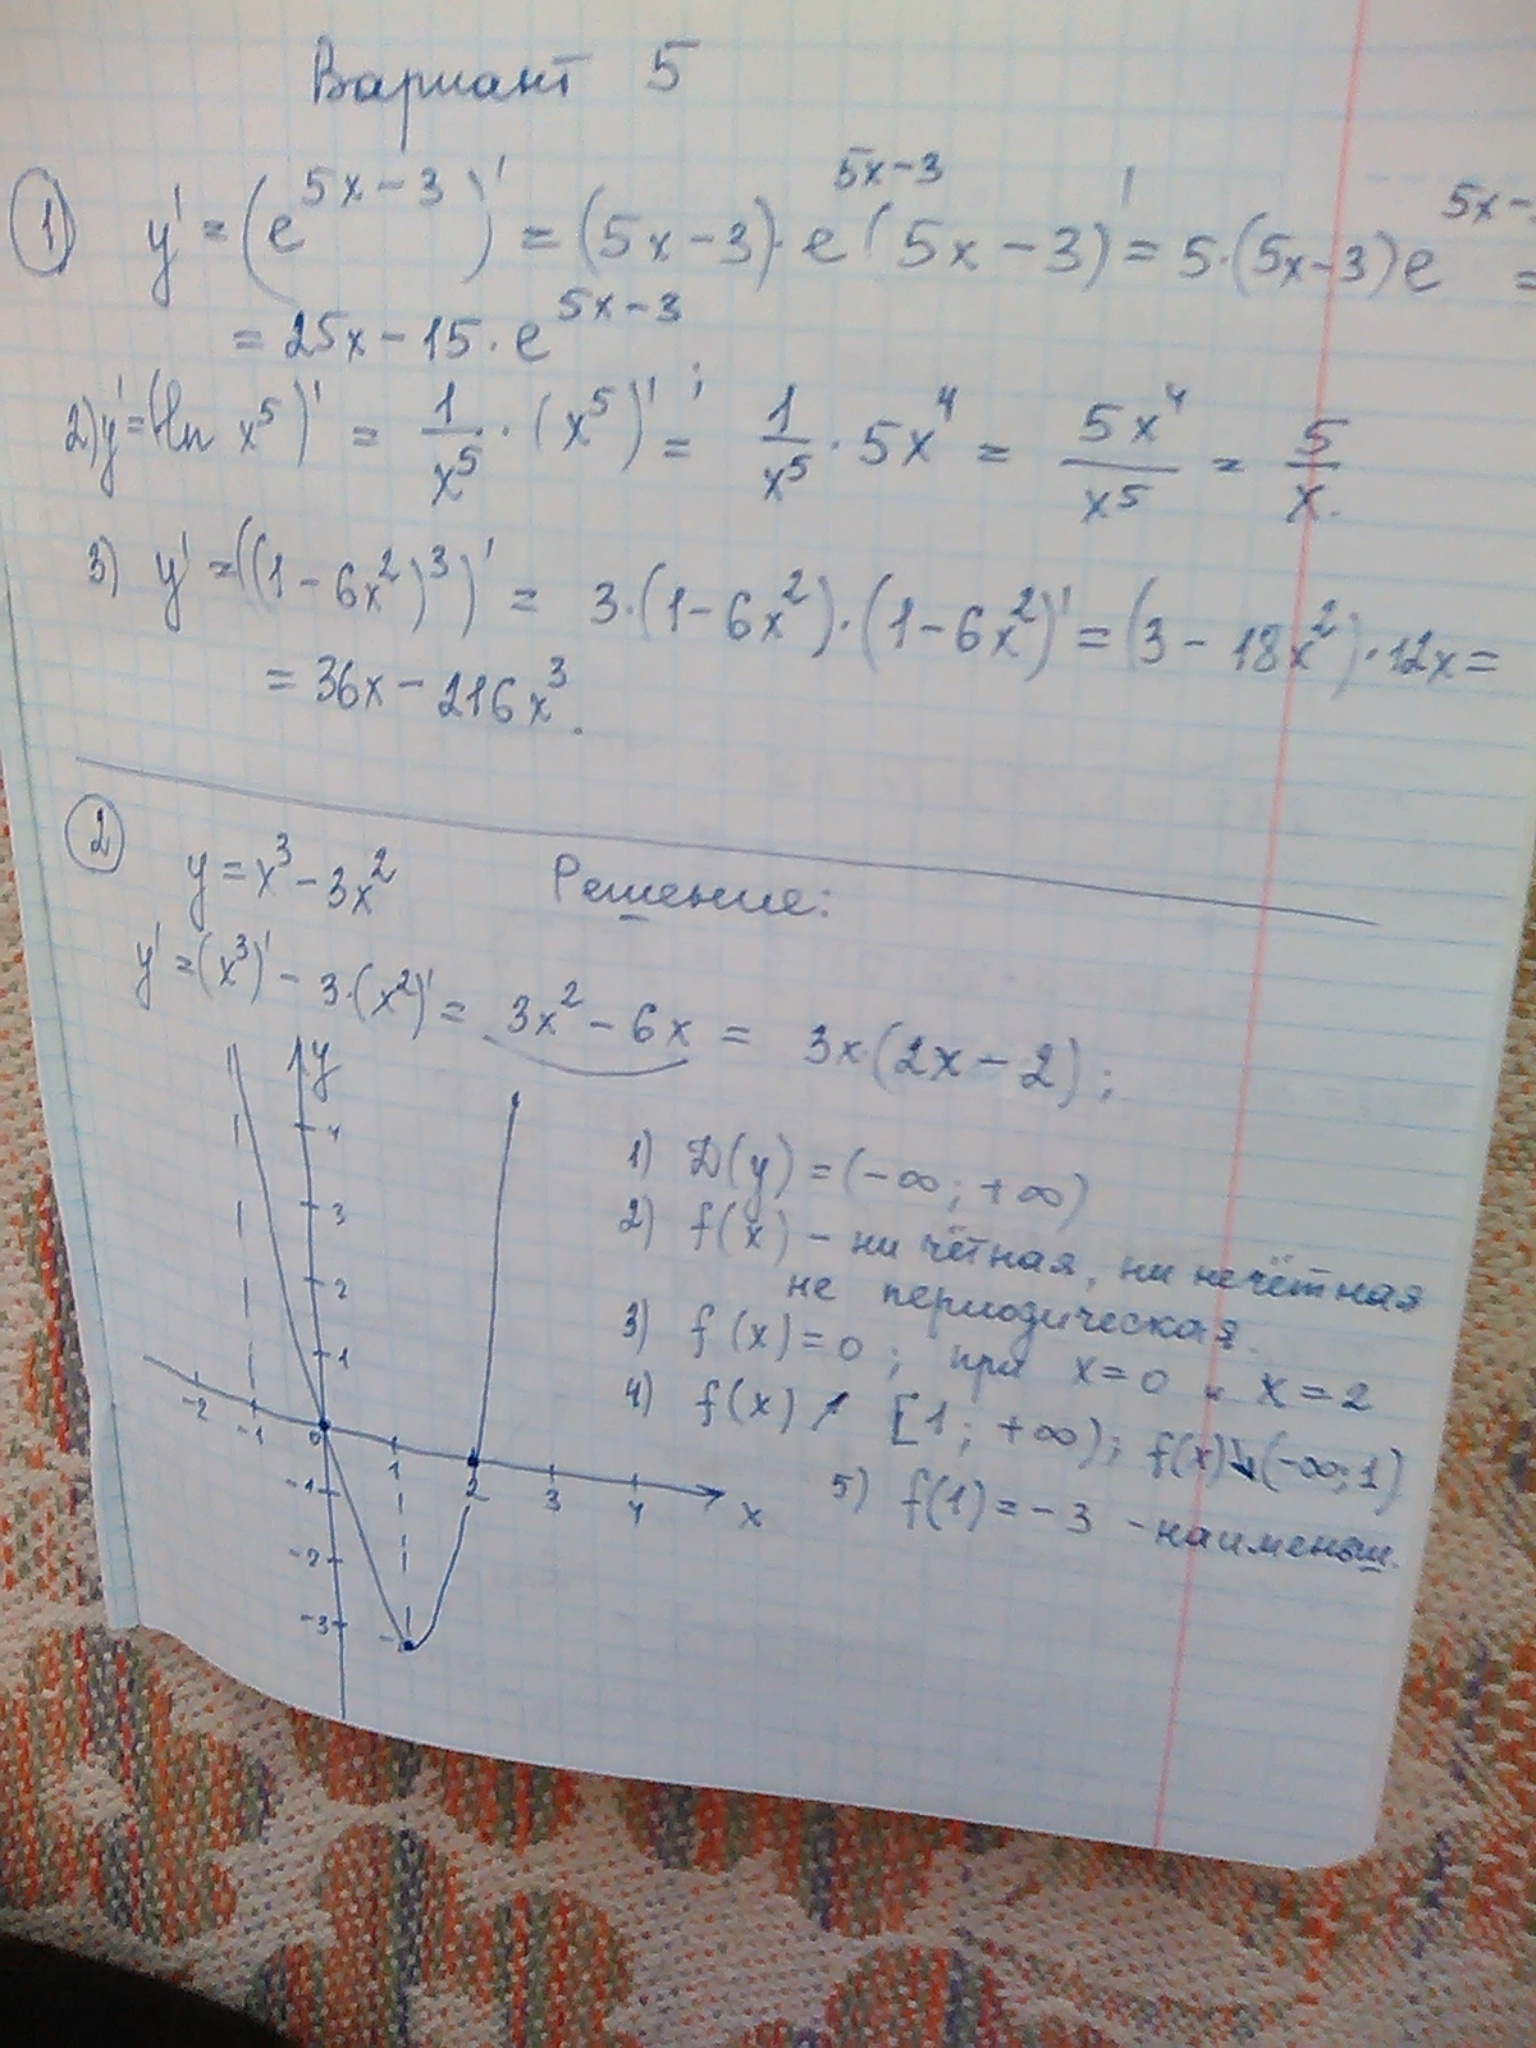 Вариант 5
① y' = (e^{5x-3})' = (5x-3)·e^{5x-3}(5x-3)' = 5·(5x-3)e^{5x-} =
= 25x-15·e^{5x-3};
2) y' = (ln x⁵)' = 1/x⁵ · (x⁵)' = 1/x⁵ · 5x⁴ = 5x⁴/x⁵ = 5/x.
3) y' = ((1-6x²)³)' = 3·(1-6x²)·(1-6x²)' = (3-18x²)·12x =
= 36x-216x³.
② y = x³-3x² Решение:
y' = (x³)' - 3·(x²)' = 3x²-6x = 3x(2x-2);
y
4
3
2
1
-2 -1 0 1 2 3 4 x
-1
-2
-3
1) D(y) = (-∞; +∞)
2) f(x) - ни чётная, ни нечётная
не периодическая.
3) f(x)=0; при x=0 и x=2
4) f(x)↑ [1; +∞); f(x)↓(-∞;1)
5) f(1) = -3 - наименьш.